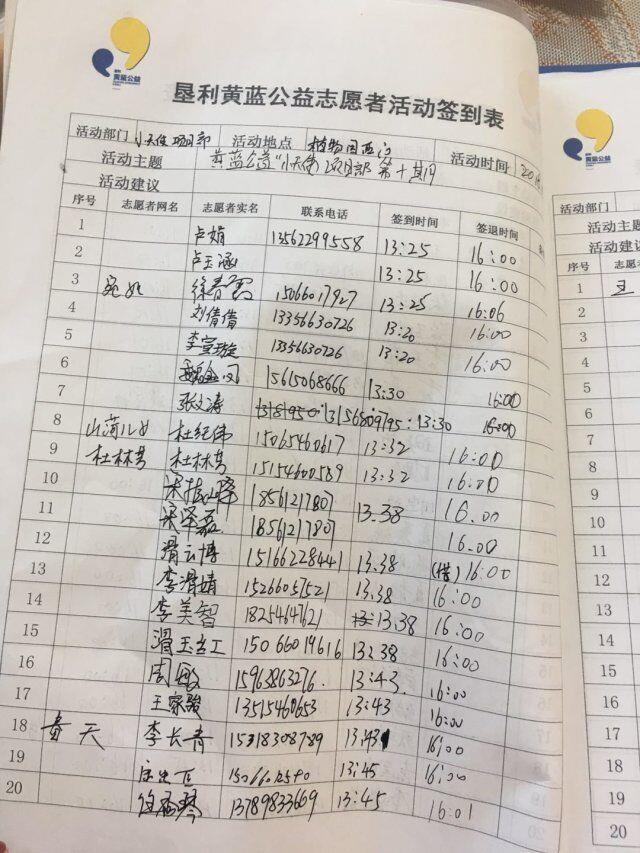 黄蓝公益
垦利黄蓝公益志愿者活动签到表
活动部门 小天使项目部 活动地点 植物园西门 活动时间
活动主题 黄蓝公益"小天使"项目部 第十期
活动建议
序号 志愿者网名 志愿者实名 联系电话 签到时间 签退时间
1 卢娟 13562299558 13:25 16:00
2 卢玉涵 13:25 16:00
3 宛如 徐春 15066017927 13:25 16:06
4 刘倩倩 13356630726 13:20 16:00
5 李宣璇 13356630726 13:20 16:00
6 魏金凤 15615068666 13:30 16:00
7 张文涛 13156809795 13:30 16:00
8 山菊儿 杜纪伟 15065460617 13:32 16:00
9 杜林芳 杜林芳 15154600589 13:32 16:00
10 宋 峰 18561217807 13.38 16.00
11 宋泽磊 18561217807 16.00
12 滑云博 15166228441 13.38 (借) 16:00
13 李滑婧 15266057521 13.38 16:00
14 李美智 18254647621 13.38 16:00
15 滑玉 15066019616 13:38 16:00
16 周敏 15963863276 13:43 16:00
17 王家骏 13515460653 13:43 16:00
18 青天 李长青 15318308789 13:43 16:00
19 13:45 16:00
20 13789833669 13:45 16:01
黄蓝公益
活动部门
活动主题
活动建议
序号 志愿者
1 王
2
3
4
5
6
7
8
9
10
11
12
13
14
15
16
17
18
19
20